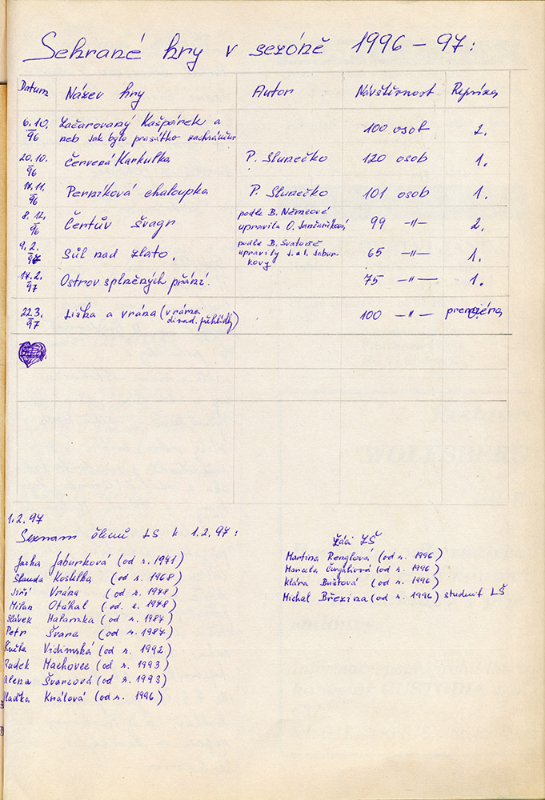 Sehrané hry v sezóně 1996 – 97:
Datum Název hry Autor Návštěvnost Repríza
6.10. 96 Začarovaný Kašpárek a
neb Jak bylo prasátko zachráněno 100 osob 2.
20.10. 96 Červená Karkulka P. Slunečko 120 osob 1.
11.11. 96 Perníková chaloupka P. Slunečko 101 osob 1.
8.12. 96 Čertův švagr podle B. Němcové
upravila O. 99 -"- 2.
9.2. 97 Sůl nad zlato. podle B.
upravily 65 -"- 1.
14.2. 97 Ostrov splněných přání. 75 -"- 1.
22.3. 97 Liška a vrána (v rámci
divad. přehlídky) 100 -"- premiéra
1.2.97
Seznam členů LS k 1.2.97:
Jarka Jaburková (od r. 1941)
Koskilka (od r. 1968)
Jiří Vrána (od r. 1978)
Milan Otáhal (od r. 1978)
Slávek Halamka (od r. 1984)
Petr Švana (od r. 1987)
Vidimská (od r. 1992)
Radek Machovec (od r. 1993)
Alena Švancová (od r. 1993)
Králová (od r. 1996)
Žáci LŠ
Martina Renglová (od r. 1996)
Marcela (od r. 1996)
Klára Buštová (od r. 1996)
Michal Březina (od r. 1996) student LŠ